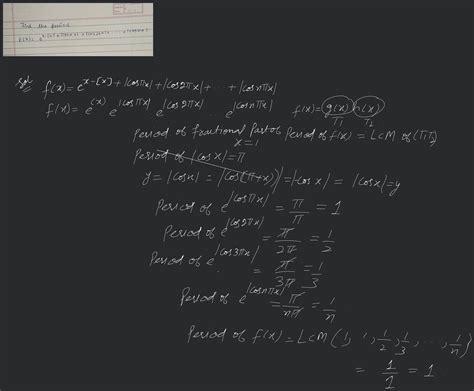 Find the period
Sol f(x) = e^{x-[x]+|cosπx|+|cos2πx|+...+|cosnπx|}
f(x) = e^{(x)} e^{|cosπx|} e^{|cos2πx|} e^{|cosnπx|} f(x) = g(x) h(x)
T1 T2
Period of fractional Part of x = 1 Period of f(x) = LCM of (T1T2)
Period of |cosx| = π
y = |cosx| = |cos(π+x)| = |-cosx| = |cosx| = y
Period of e^{|cosπx|} = π/π = 1
Period of e^{|cos2πx|} = π/2π = 1/2
Period of e^{|cos3πx|} = π/3π = 1/3
Period of e^{|cosnπx|} = π/nπ = 1/n
Period of f(x) = LCM {1, 1, 1/2, 1/3, ..., 1/n}
= 1/1 = 1